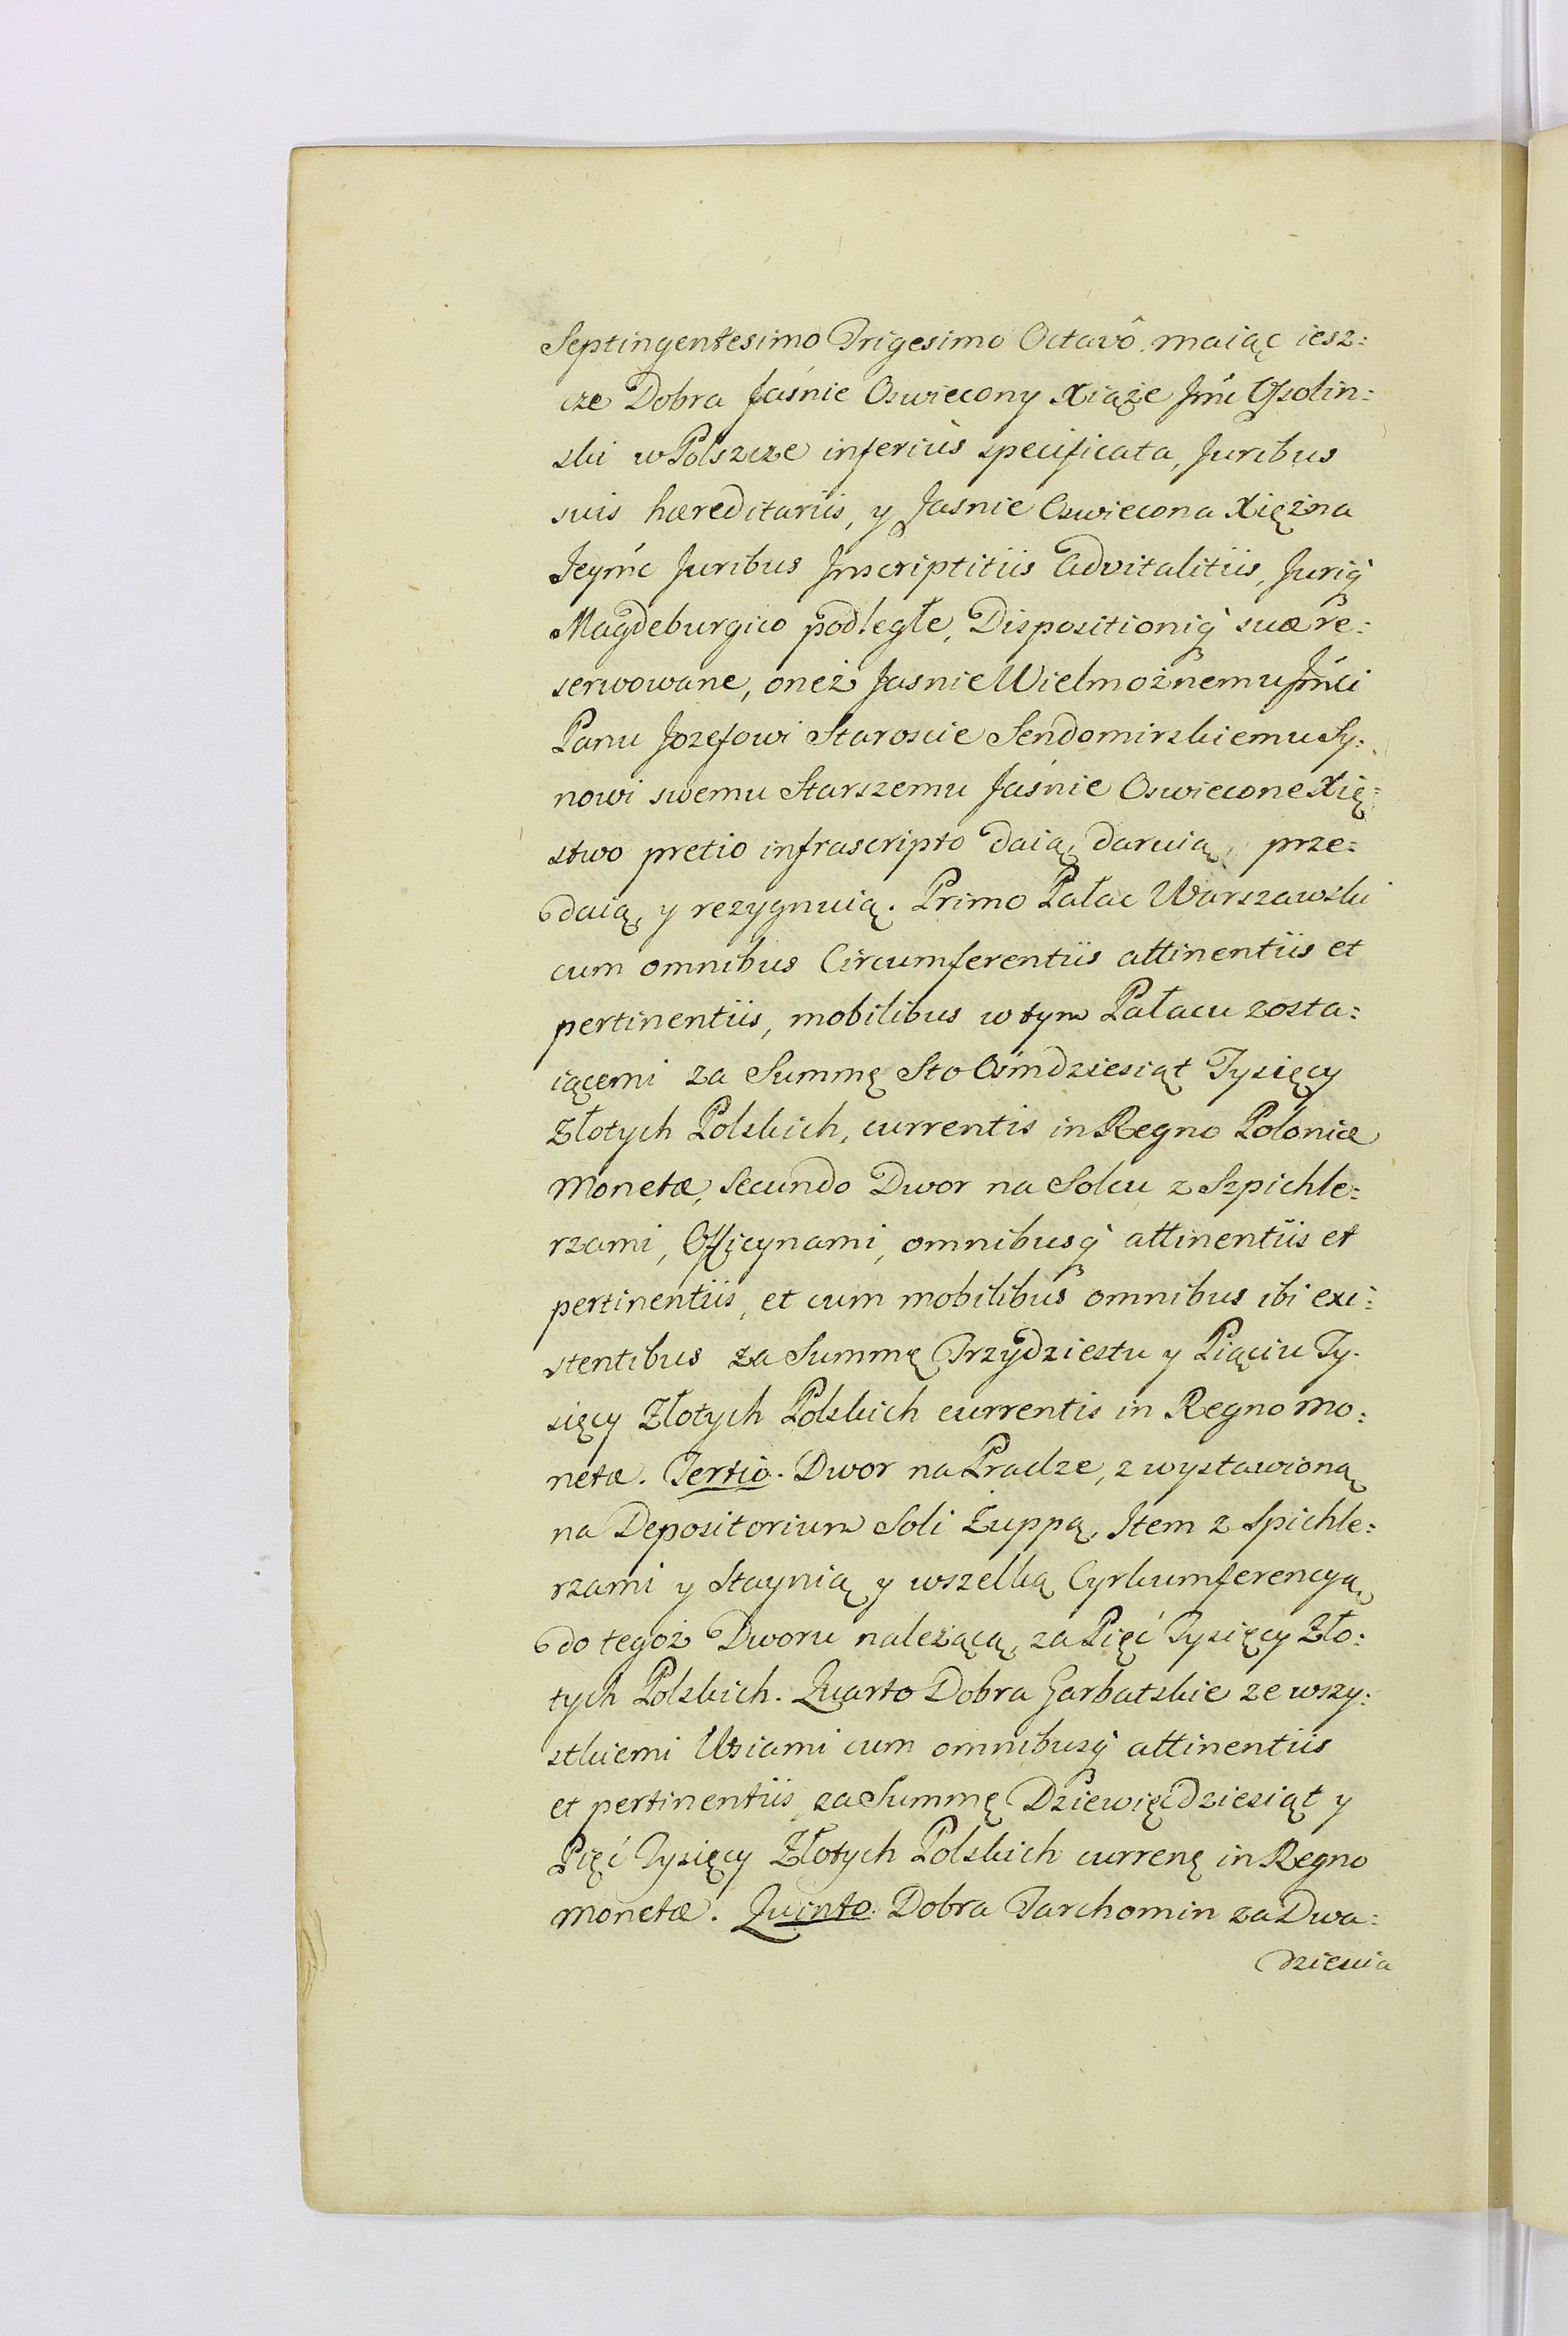 Septingentesimo Trigesimo Octavô. maiąc iesz:
cze Dobra Jaśnie Oswiecony Xiąże Jmć Ossolin:
ski w Polszcze inferiùs specificata, Juribus
suis hæreditariis, y Jasnie Oswiecona Xiężna
Jeymć Juribus Inscriptitiis Advitalitiis, Juriq̀
Magdeburgico podległe, Dispositioniq̀ suæ re:
serwowane, oneż Jasnie Wielmożnemu Jmći
Panu Jozefowi Staroscie Sendomirskiemu Sy:
nowi swemu Starszemu Jaśnie Oswiecone Xię:
stwo pretio infrascripto daią, daruią, prze:
daią, y rezygnuią. Primo Pałac Warszawski
cum omnibus Circumferentiis attinentiis et
pertinentiis, mobilibus w tym Pałacu zosta:
iącemi za Summę Sto Osmdziesiąt Tysięcy
Złotych Polskich, currentis in Regno Poloniæ
Monetæ, Secundo Dwor na Solcu z Szpichle:
rzami, Officynami, omnibusq̀ attinentiis et
pertinentiis, et cum mobilibus omnibus ibi exi:
stentibus za Summę Trzydziestu y Piąciu Ty:
sięcy Złotych Polskich currentis in Regno Mo:
netæ. Tertio. Dwor na Pradze, z wystawioną
na Depositorium Soli Żuppą, Item z Spichle:
rzami y Staynią y wszelką Cyrkumferencyą
do tegoż Dworu należącą, za Pięć Tysięcy Zło:
tych Polskich. Quarto Dobra Garbatskie ze wszy:
stkiemi Wsiami cum omnibusq̀ attinentiis
et pertinentiis, za Summę Dziewięćdziesiąt y
Pięć Tysięcy Złotych Polskich currenę in Regno
Monetæ. Quinto. Dobra Tarchomin za Dwa:
dziescia